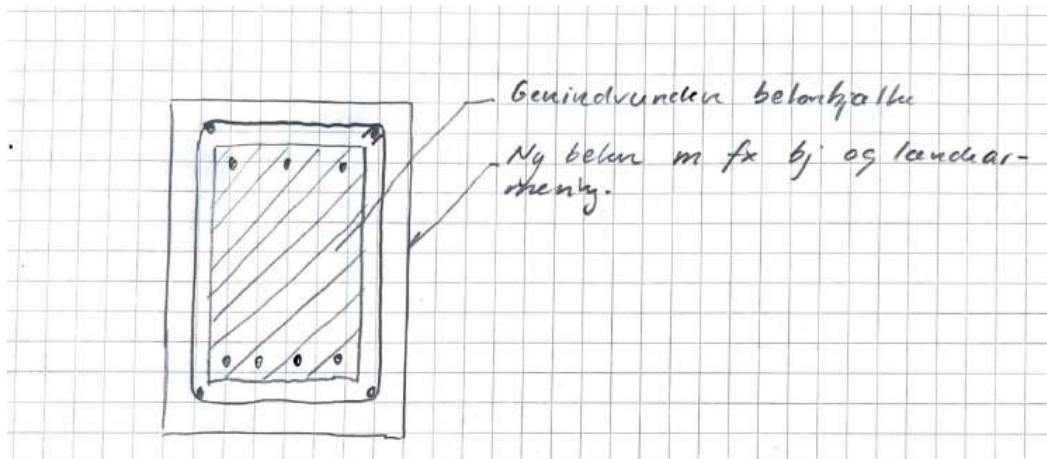 Genindvunden betonbjælke
Ny beton m fx bj og længdear-
mering.